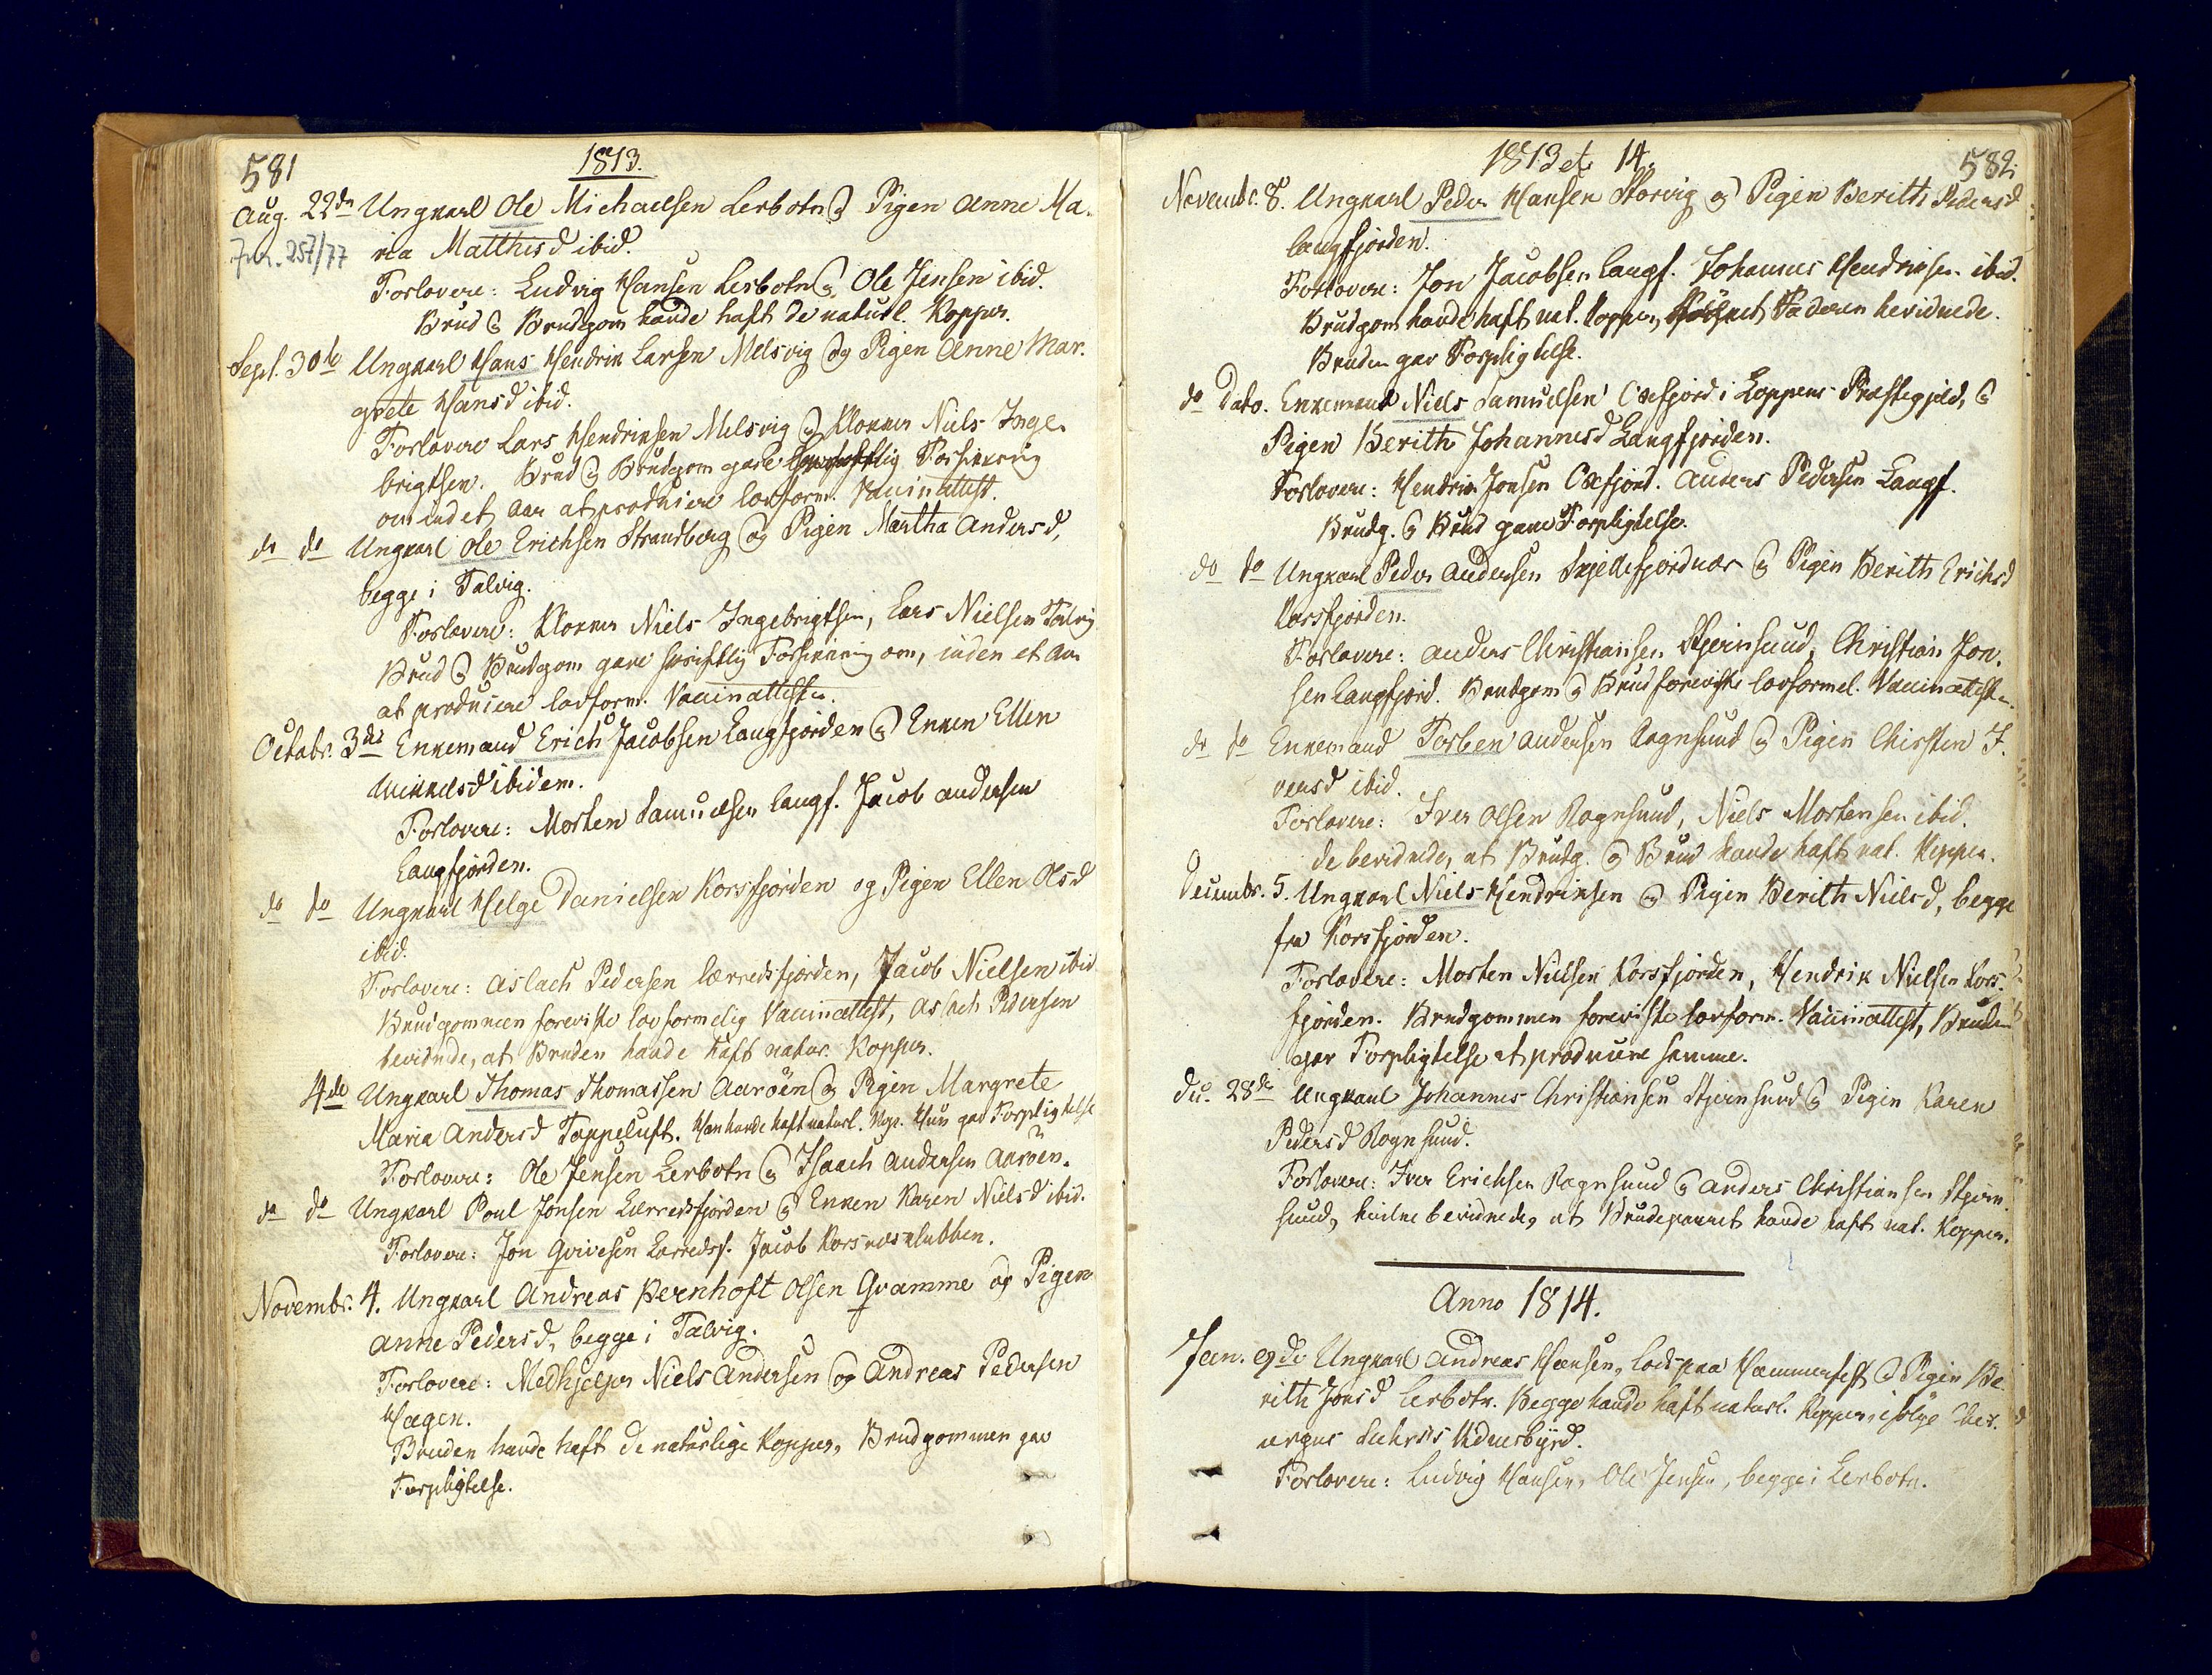 581
1813.
Aug. 22de Ungkarl Ole Michaelsen Lerbotn og Pigen Anne Ma-
Jnr. 257/77 ria Matthisd ibid.
Forlovere: Ludvig Hansen Lerbotn og Ole Jensen ibid.
Brud og Brudgom havde haft de naturl. Kopper.
Sept. 30te Ungkarl Hans Hendrik Larsen Melsvig og Pigen Anne Mar-
grete Hansd ibid.
Forlovere Lars Hendriksen Melsvig og Klokker Niels Inge-
brigtsen. Brud og Brudgom gave Forsikkring
om inden et Aar at producere lovform. Vaccinattest.
do do Ungkarl Ole Erichsen Strandberg og Pigen Martha Andersd,
begge i Talvig.
Forlovere: Klokker Niels Ingebrigtsen, Lars Nielsen Talvig
Brud og Brudgom gave skriftlig Forsikkring om, inden et Aar
at producere lovform. Vaccinattester.
Octobr. 3die Enkemand Erich Jacobsen Langfjorden og Enken Ellen
Mikkelsd ibidem.
Forlovere: Morten Samuelsen Langf. Jacob Andersen
Langfjorden.
do do Ungkarl Helge Danielsen Korsfjorden og Pigen Ellen Olsd
ibid.
Forlovere: Aslach Pedersen Lerredsfjorden, Jacob Nielsen ibid
Brudgommen foreviste lovformelig Vaccinattest, Aslach Pedersen
bevidnede, at Bruden havde haft natur. Kopper.
4de Ungkarl Thomas Thomassen Aarøen og Pigen Margrete
Maria Andersd Toppeluft. Han havde haft naturl. Kop. Hun gav Forpligtelse
Forlovere: Ole Jensen Lerbotn og Isaach Andersen Aarøen.
do do Ungkarl Poul Jonsen Lerredsfjorden og Enken Karen Nielsd ibid.
Forlovere: Jon Qvivesen Lerredsf. Jacob Korsnæsklubben.
Novembr. 4. Ungkarl Andreas Bernhoft Olsen Qvamme og Pigen
Anne Pedersd, begge i Talvig.
Forlovere: Medhjelper Niels Andersen og Andreas Pedersen
Hagen.
Bruden havde haft de naturlige Kopper, Brudgommen gav
Forpligtelse.
1813 et 14.
582.
Novembr. 8. Ungkarl Peder Hansen Storvig og Pigen Berith Pedersd
Langfjorden.
Forlovere: Jon Jacobsen Langf. Johannes Hendriksen ibid.
Brudgom havde haft nat. Kopper, Faderen bevidnede.
Bruden gav Forpligtelse.
do Dato. Enkemand Niels Samuelsen Oxfjord i Loppens Præstegjeld, og
Pigen Berith Johannesd Langfjorden.
Forlovere: Hendrik Jonsen Oxfjord. Anders Pedersen Langf.
Brudg. og Brud gave Forpligtelse.
do do Ungkarl Peder Andersen Skjellefjordnæs og Pigen Berith Erichsd
Korsfjorden.
Forlovere: Anders Christiansen Stjernsund, Christian Jon-
sen Langfjord. Brudgom og Brud foreviste lovformel. Vaccinattester.
do do Enkemand Torben Andersen Rognsund og Pigen Chirsten I-
versd ibid.
Forlovere: Iver Olsen Rognsund, Niels Mortensen ibid.
de bevidnede, at Brudg. og Brud havde haft nat. Kopper.
Decembr. 5. Ungkarl Niels Hendriksen og Pigen Berith Nielsd, begge
fra Korsfjorden.
Forlovere: Morten Nielsen Korsfjorden, Hendrik Nielsen Kors-
fjorden. Brudgommen foreviste lovform. Vaccinattest, Bruden
gav Forpligtelse at producere samme.
Dec. 28de Ungkarl Johannes Christiansen Stjernsund og Pigen Karen
Pedersd Rognsund.
Forlovere: Iver Erichsen Rognsund og Anders Christiansen Stjern-
sund, hvilke bevidnede, at Brudeparret havde haft nat. Kopper.
Anno 1814.
Jan. 9de Ungkarl Andreas Hansen, Lods paa Hammerfest og Pigen Be-
rith Jonsd Lerbotn. Begge havde haft naturl. Kopper, ifølge Chir-
urgus Vidnesbyrd.
Forlovere: Ludvig Hansen, Ole Jensen, begge i Lerbotn.